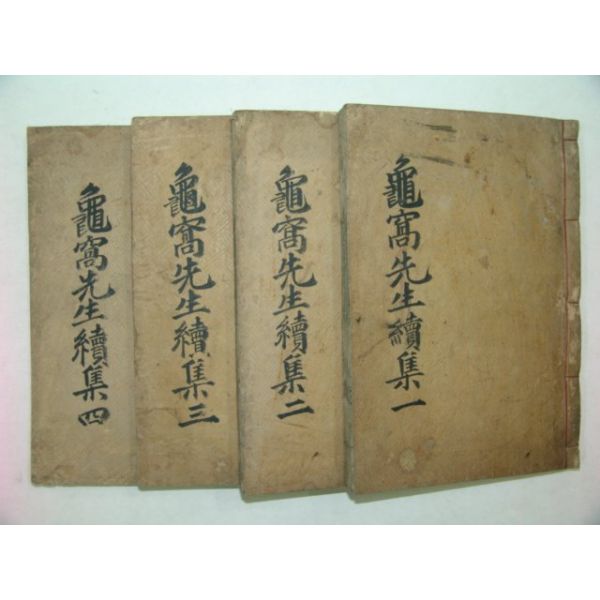 龜窩先生續集一
龜窩先生續集二
龜窩先生續集三
龜窩先生續集四